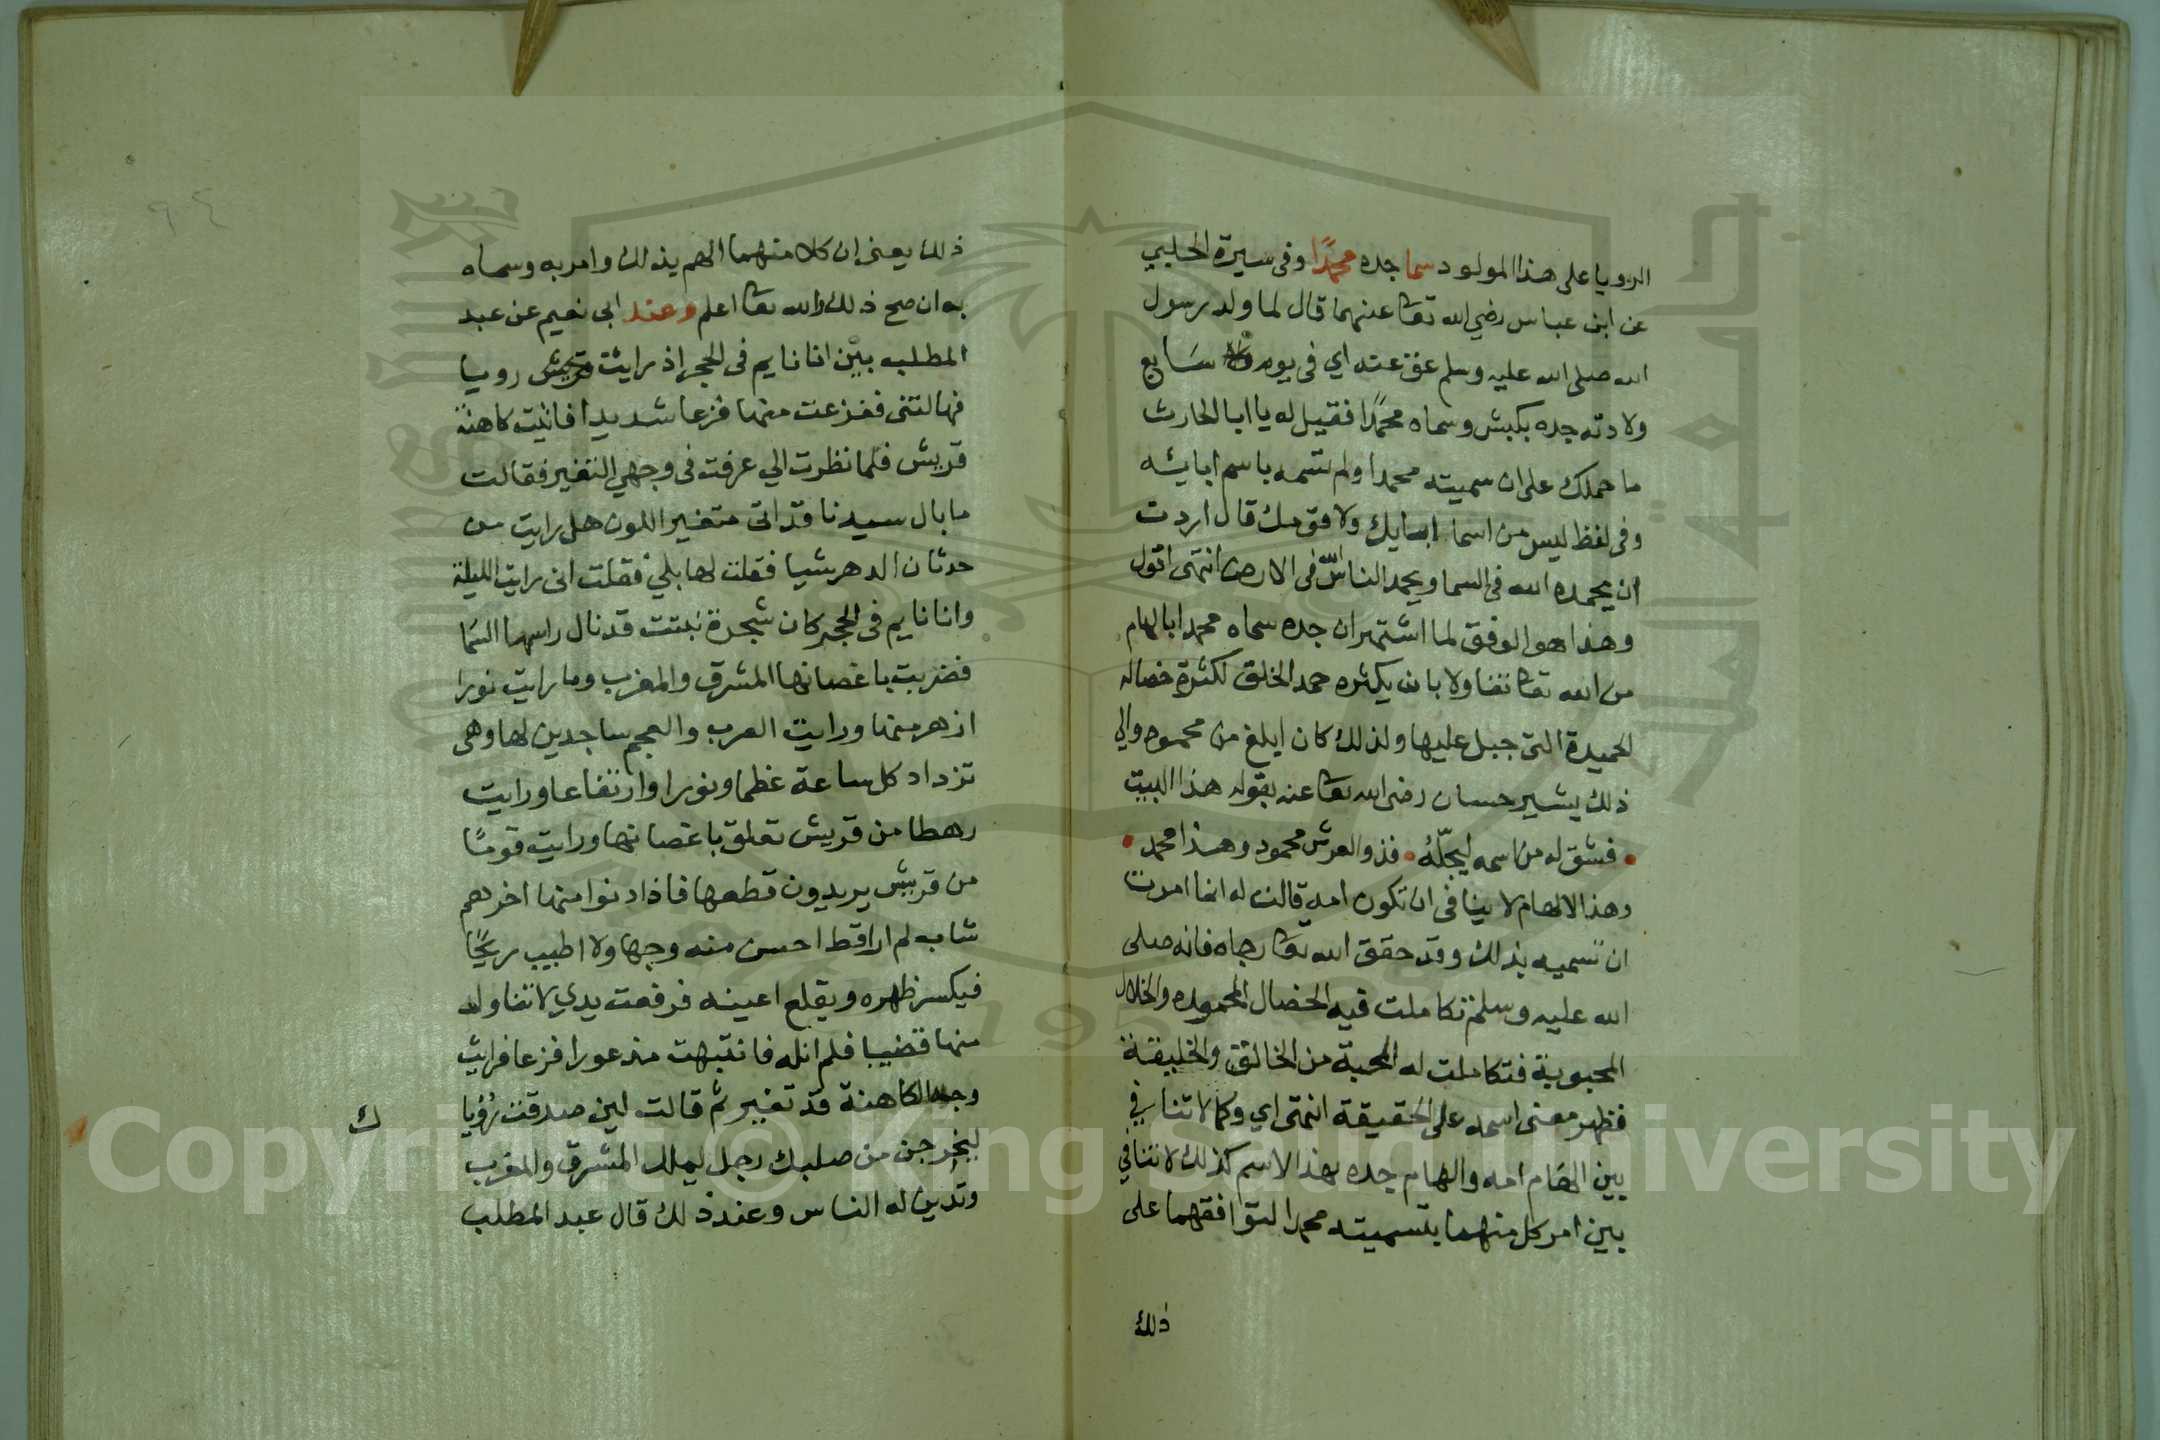 الرويا على هذا المولود سما جده محمدًا وفى سيرة الحلبي
عن ابن عباس رضي الله تعا عنهما قال لما ولد رسول
الله صلى الله عليه وسلم عق عنه اي في يوم سَابع
ولادته جده بكبش وسماه محمدًا فقيل له يا ابا الحارث
ما حملك على ان سميته محمدا ولم تسمه باسم ابايئه
وفى لفظ ليس من اسما ابايك ولا قومك قال اردت
ان يحمده الله فى السما ويحمد الناس فى الارض انتهى اقول
وهذا هو الوفق لما اشتهر ان جده سماه محمدا بالهام
من الله تعا تفاولا بان يكثره حمد الخلق لكثرة خصاله
الحميدة التى جبل عليها ولذلك كان ابلغ من محمود والي
ذلك يشير حسان رضى الله تعا عنه بقوله هذا البيت
فشق له من اسمه ليجلّهُ فذو العرش محمود وهذا محمد
وهذا الالهام لا ينا فى ان تكون امه قالت له انما امرت
ان تسميه بذلك وقد حقق الله تعا رجاه فانه صلى
الله عليه وسلم تكاملت فيه الخصال المحموده والخلال
المحبوبة فتكاملت له المحبة من الخالق والخليقة
فظهر معنى اسمه على الحقيقة انتهى اي وكما لا تنا في
بين الهام امه والهام جده بهذا الاسم كذلك لا تنا في
بين امر كل منهما بتسميته محمدا لتوافقهما على
ذلك
ذلك يعنى ان كلا منهما الهم بذلك وامر به وسماه
به ان صح ذلك والله تعا اعلم وعند ابى نعيم عن عبد
المطلب بين انا نايم فى الحجر اذ رايت رويا
فهالتنى ففزعت منها فزعا شديدا فاتيت كاهنة
قريش فلما نظرت الي عرفت فى وجهي التغير فقالت
ما بال سيدنا قد اتى متغير اللون هل رايت من
حدثان الدهر شيا فقلت لها بلي فقلت انى رايت الليلة
وانا نايم فى الحجر كان شجرة نبتت قد نال راسها السما
فضربت باغصانها المشرق والمغرب وما رايت نورا
ازهر منها ورايت العرب والعجم ساجدين لها وهى
تزداد كل ساعة عظما ونورا وارتفاعا ورايت
رهطا من قريش تعلق باغصانها ورايت قومًا
من قريش يريدون قطعها فاذا دنوا منها اخرهم
شاب لم ار قط احسن منه وجها ولا اطيب ريحًا
فيكسر ظهره ويقلع اعينه فرفعت يدي لاتناوله
منها قضيبا فلم انله فانتبهت مذعورا فزعا فرايت
وجه الكاهنة قد تغير ثم قالت لين صدقت رؤيا
ك
ليخرجن من صلبك رجل يملك المشرق والمغرب
وتدين له الناس وعند ذلك قال عبد المطلب
Copyright © King Saud University